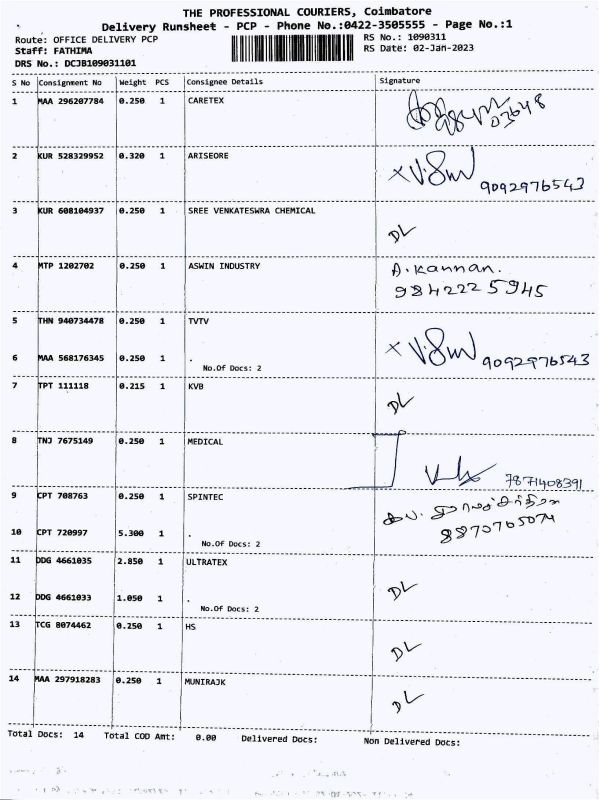 THE PROFESSIONAL COURIERS, Coimbatore
Delivery Runsheet - PCP - Phone No.:0422-3505555 - Page No.:1
Route: OFFICE DELIVERY PCP
RS No.: 1090311
Staff: FATHIMA
RS Date: 02-Jan-2023
DRS No.: DCJB109031101
S No Consignment No Weight PCS Consignee Details Signature
1 MAA 296207784 0.250 1 CARETEX 03648
2 KUR 528329952 0.320 1 ARISEORE
9092976543
3 KUR 608104937 0.250 1 SREE VENKATESWRA CHEMICAL
DL
4 MTP 1202702 0.250 1 ASWIN INDUSTRY A. Kannan.
9842225945
5 THN 940734478 0.250 1 TVTV
6 MAA 568176345 0.250 1 . 9092976543
No.Of Docs: 2
7 TPT 111118 0.215 1 KVB
DL
8 TNJ 7675149 0.250 1 MEDICAL
7871408391
9 CPT 708763 0.250 1 SPINTEC
10 CPT 720997 5.300 1 . 8870765074
No.Of Docs: 2
11 DDG 4661035 2.850 1 ULTRATEX
DL
12 DDG 4661033 1.050 1 .
No.Of Docs: 2
13 TCG 8074462 0.250 1 HS
DL
14 MAA 297918283 0.250 1 MUNIRAJK
DL
Total Docs: 14 Total COD Amt: 0.00 Delivered Docs: Non Delivered Docs: